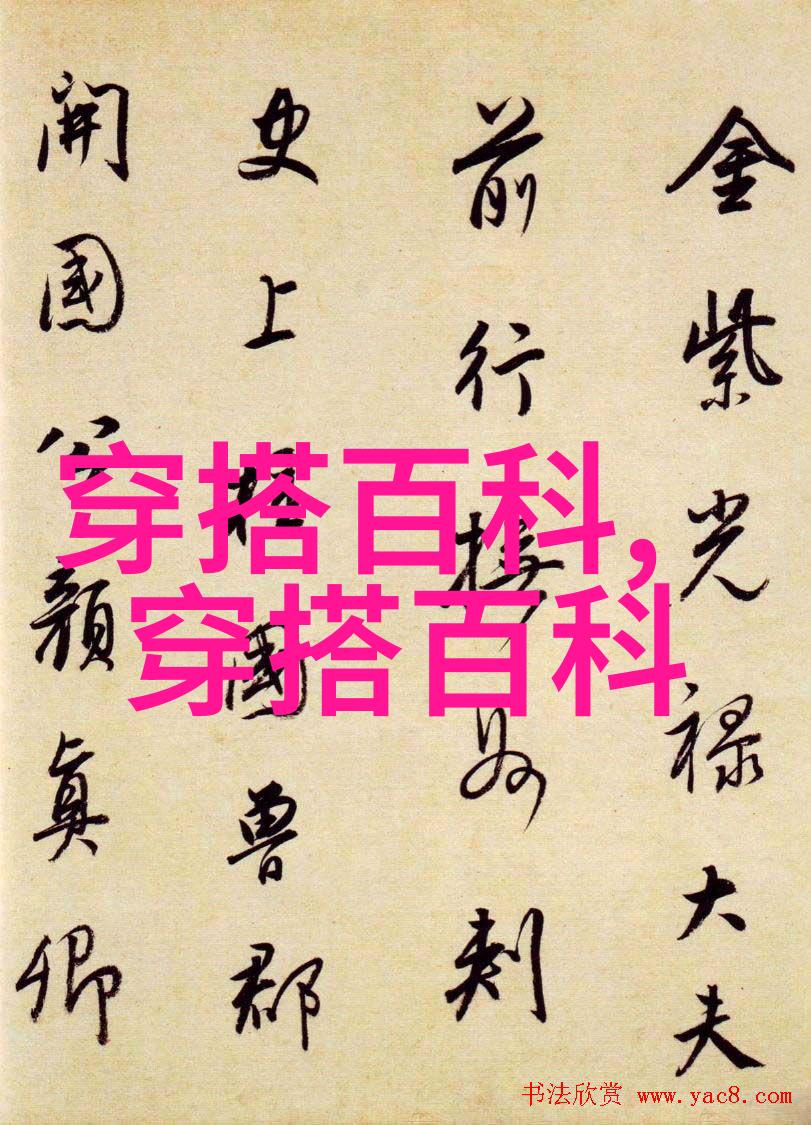 金紫光禄大夫
前行撫州刺
史上柱國魯郡
開國公顏真卿
穿搭百科,
穿搭百科
书法欣赏 www.yac8.com